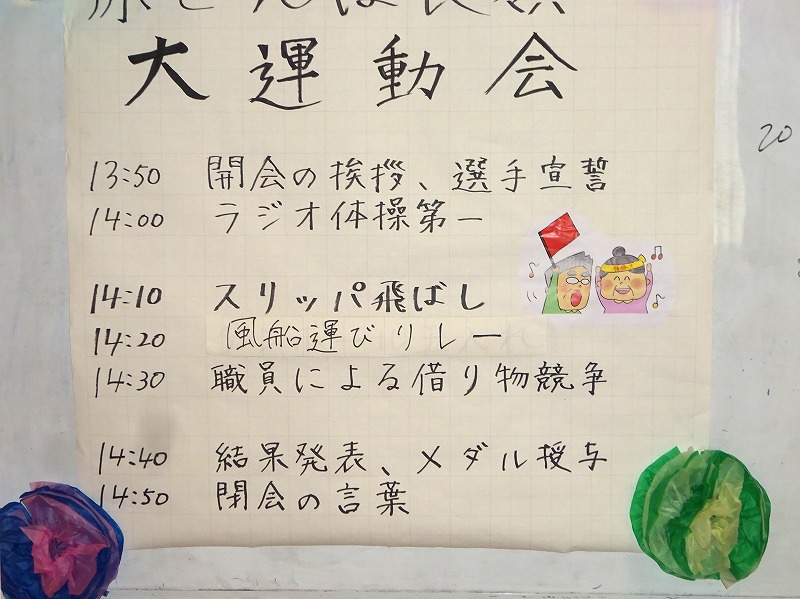 大運動会
13:50 開会の挨拶、選手宣誓
14:00 ラジオ体操第一
14:10 スリッパ飛ばし
14:20 風船運びリレー
14:30 職員による借り物競争
14:40 結果発表、メダル授与
14:50 閉会の言葉
20